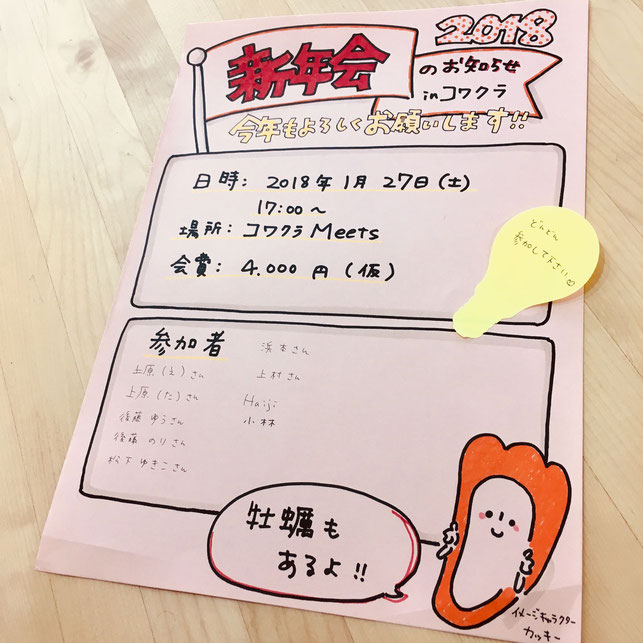 2018
新年会
のお知らせ
inコワクラ
今年もよろしくお願いします!!
日時: 2018年1月27日(土)
17:00〜
場所: コワクラMeets
会費: 4.000円(仮)
どんどん
参加して下さい♡
参加者
上原(え)さん
上原(た)さん
後藤ゆうさん
後藤のりさん
松下ゆきこさん
浜本さん
上村さん
Haiji
小林
牡蠣も
あるよ!!
イメージキャラクター
カッキー